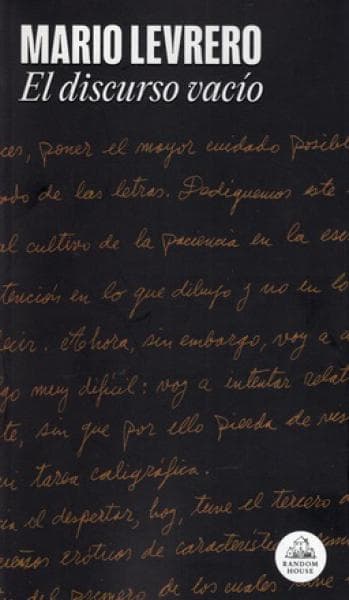 MARIO LEVRERO
El discurso vacío
ces, poner el mayor cuidado posibl
ado de las letras. Dediquemos este
al cultivo de la paciencia en la esc
tención en lo que dibujo y no en lo
ecir. Ahora, sin embargo, voy a a
go muy difícil: voy a intentar relat
te, sin que por ello pierda de vis
mi tarea caligráfica.
a el despertar, hoy, tuve el tercero d
ueños eróticos de característic
del primero de los cuales
RANDOM
HOUSE